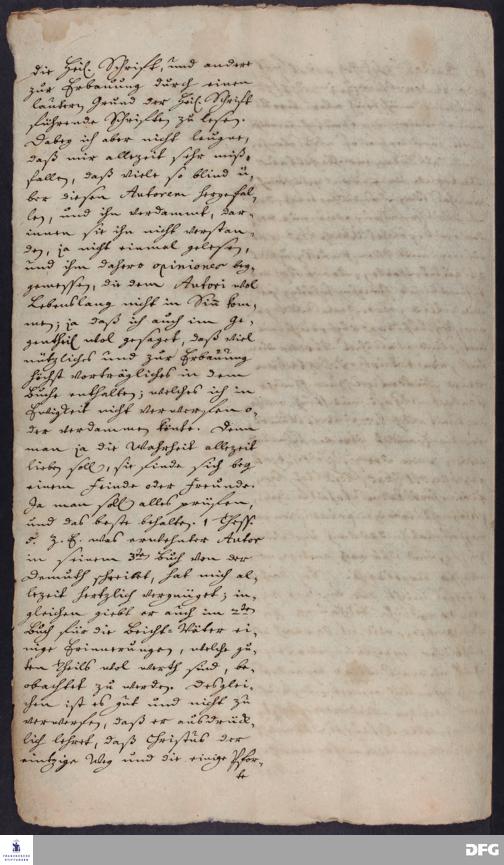 die Heil. Schrift, und andere
zur Erbauung durch einen
lautern Grund der Heil. Schrift
führende Schriften zu lesen.
Dabey ich aber nicht leugne,
daß mir allezeit sehr miß-
fallen, daß viele so blind ü-
ber diesen Autorem hergefal-
len, und ihn verdammt, dar-
innen sie ihn nicht verstan-
den, ja nicht einmal gelesen,
und ihm dahero opiniones bey-
gemessen, die dem Autori wol
Lebenslang nicht in Sinn kom-
men; ja daß ich auch im Ge-
gentheil wol gesaget, daß viel
nützliches und zur Erbauung
höchst verträgliches in dem
Buche enthalten; welches ich in
Ewigkeit nicht verwerfen o-
der verdammen könte. Denn
man ja die Wahrheit allezeit
lieben soll, sie finde sich bey
einem Feinde oder Freunde.
Ja man soll alles prüfen,
und das beste behalten. 1 Thess.
5. Z. E. was erwehnter Autor
in seinem 3ten Buch von der
Demuth schreibet, hat mich al-
lezeit hertzlich vergnüget; in-
gleichen giebt er auch im 2ten
Buch für die Beicht-Väter ei-
nige Erinnerungen, welche gu-
ten Theils wol werth sind, be-
obachtet zu werden. Desglei-
chen ist es gut und nicht zu
verwerfen, daß er ausdrück-
lich lehret, daß Christus der
eintzige Weg und die einige Pfor-
te
FRANCKESCHE
STIFTUNGEN
DFG